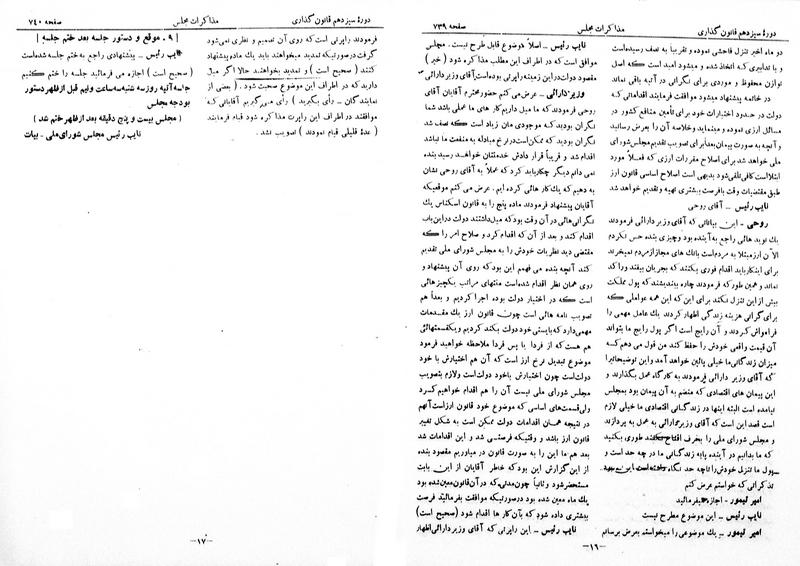 دورهٔ سیزدهم قانون گذاری
مذاکرات مجلس
صفحه ۷۳۹
دو ماه اخیر تنزل فاحشی نموده و تقریباً به نصف رسیده‌است
و با تدابیری که اتخاذ شده و میشود امید است که اصل
توازن محفوظ و موردی برای نگرانی در آتیه باقی نماند
در خاتمه پیشنهاد میشود موافقت فرمایند اقداماتی که
دولت در حدود اختیارات خود برای تأمین منافع کشور در
مسائل ارزی نموده و مینماید وخلاصه آن را بعرض رسانید
و آنچه به صورت پیمان بعداً برای تصویب تقدیم مجلس‌شورای
ملی خواهد شد برای اصلاح مقررات ارزی که فعلاً مورد
ابتلا است کافی تلقی شود بدیهی است اصلاح اساسی قانون ارز
طبق مقتضیات وقت با فرصت بیشتری تهیه و تقدیم خواهد شد
نایب رئیس ــ آقای روحی
روحی ــ این بیاناتی که آقای وزیر دارائی فرمودند
یك نوید هائی راجع به آینده بود و چیزی بنده حس نکردم
الآن ارز مبتلا به مردم است بانك های مجاز از مردم نمیخرند
برای اینکار باید اقدام فوری بکنند که بجریان بیفتد و راکد
نماند و همین طور که فرمودند چاره بیندیشند که پول مملکت
بیش از این تنزل نکند برای این که این همه عواملی که
برای گرانی هزینه زندگی اظهار کردند یك عامل مهمی را
فراموش کردند و آن رایج است اگر پول رایج ما بتواند
آن قیمت واقعی خودش را حفظ کند من قول می دهم که
میزان زندگانی ما خیلی پائین خواهد آمد و این توضیحاتیرا
که آقای وزیر دارائی فرمودند به کارگاه عمل بگذارند و
این پیمان های اقتصادی که منضم به آن پیمان بود بمجلس
نیامده است البته اینها در زندگانی اقتصادی ما خیلی لازم
است قصد این است که آقای وزیر دارائی به عمل به پردازند
و مجلس شورای ملی را بحرف اقناع نکنند طوری بکنند
که ما بدانیم در آینده پایه زندگانی ما در چه حد است و
پول ما تنزل خودش را تا چه حد نگاه داشته است این بود
تذکراتی که خواستم عرض کنم
امیر تیمور ــ اجازه میفرمائید
نایب رئیس ــ این موضوع مطرح نیست
امیر تیمور ــ یك موضوعی را میخواستم بعرض برسانم
نایب رئیس ــ اصلاً موضوع قابل طرح نیست . مجلس
موافق است که در اطراف این مطلب مذاکره شود (خیر)
مقصود دولت در این زمینه راپرتی بوده است آقای وزیر دارائی
وزیر دارائی ــ عرض می کنم حضور محترم آقایان آقای
روحی فرمودند که ما میل داریم کار های ما عملی باشد شما
نگران بودید که موجودی مان زیاد است که نصف شد
نگران بودید که ممکن است در نرخ مبادله به منفعت ما نباشد
اقدام شد و قریباً قرار دادش خدمتتان خواهد رسید بنده
نمی دانم دیگر چکار باید کرد که عملاً به آقای روحی نشان
به دهیم که یك کار هائی کرده ایم . عرض می کنم موقعیکه
آقایان پیشنهاد فرمودند ماده پنج را به قانون اسکناس یك
نگرانی هائی در آن وقت بود که میل داشتند دولت در این باب
اقدام کند و بعد از آن که اقدام کرد و صلاح امر را که
مقتضی دید نظریات خودش را به مجلس شورای ملی تقدیم
کند آنچه بنده می فهمم این بود که روی آن پیشنهاد و
روی همان نظر اقدام شده است منتهای مراتب یکچیزهائی
است که در اختیار دولت بوده اجرا کردیم و بعداً هم
تصویب نامه هائی است چون قانون ارز یك مقدمات
مهمی دارد که بایستی خود دولت بکند کردیم و یکقسمتهائی
هم هست که از فردا یا پس فردا ملاحظه خواهید فرمود
موضوع تبدیل نرخ ارز است که آن هم اختیارش با خود
دولت است چون اختیارش با خود دولت است ولازم بتصویب
مجلس شورای ملی نیست آن را هم اقدام خواهیم کرد
ولی قسمت‌های اساسی که موضوع خود قانون ارز است آنهم
در نتیجه همان اقدامات دولت ممکن است به شکل تغییر
قانون ارز باشد و وقتیکه فرصتی شد و این اقدامات شد
بعد هم ما این را به صورت قانون در میاوریم مقصود بنده
از این گزارش این بود که خاطر آقایان از این بابت
مستحضر شود و ثانیاً چون مدتی که در آن قانون معین شده بود
یك ماه معین شده بود در صورتیکه موافقت بفرمائید فرصت
بیشتری داده شود که بآن کار ها اقدام شود (صحیح است)
نایب رئیس ــ این راپرتی که آقای وزیر دارائی اظهار
ــ۱۶ــ
دورهٔ سیزدهم قانون گذاری
مذاکرات مجلس
صفحه ۷۴۰
فرمودند راپرتی است که روی آن تصمیم و نظری نمی‌شود
گرفت در صورتیکه تمدید میخواهند باید یك ماده پیشنهاد
کنند ( صحیح است ) و تمدید بخواهند حالا اگر میل
دارید که در اطراف این موضوع صحبت شود . ( بعضی از
نمایندگان ــ رأی بگیرید ) رأی میگیریم آقایانی که
موافقند در اطراف این راپرت مذاکره شود قیام فرمایند
( عدهٔ قلیلی قیام نمودند ) تصویب نشد .
[ ۹ ــ موقع و دستور جلسه بعد ختم جلسه ]
نایب رئیس ــ پیشنهادی راجع به ختم جلسه شده
( صحیح است ) اجازه می فرمائید جلسه را ختم کنیم
جلسه آتیه روز سه شنبه سه ساعت ونیم قبل از ظهر دستور
بودجه مجلس
( مجلس بیست و پنج دقیقه بعد از ظهر ختم شد )
نایب رئیس مجلس شورای ملی ــ بیات
ــ۱۷ــ